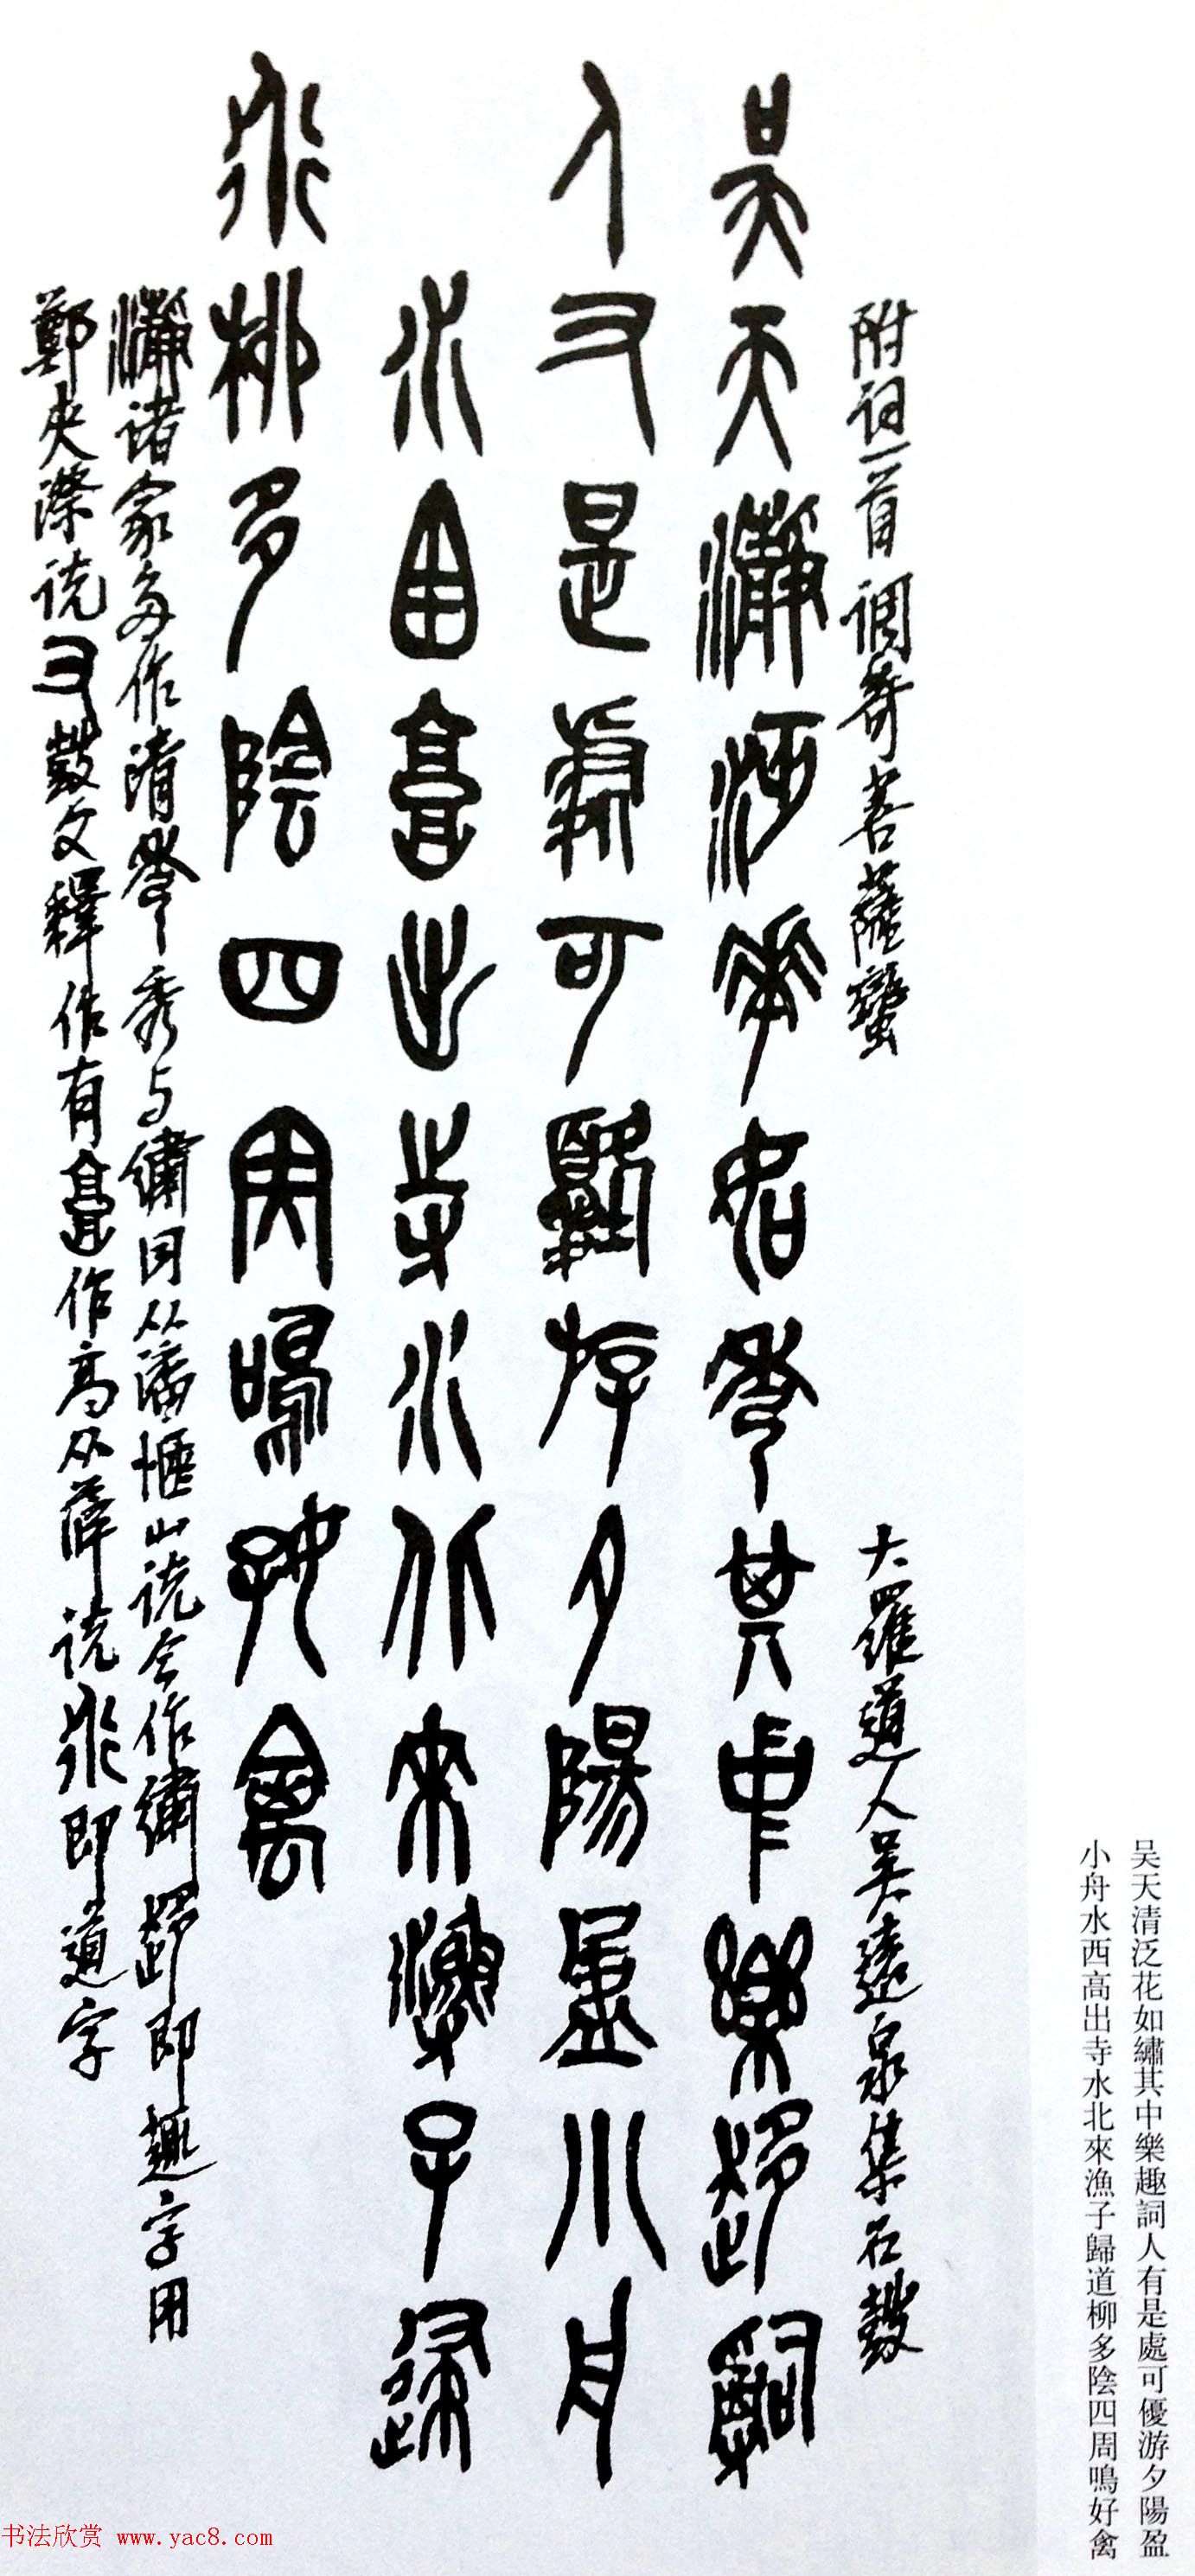 吴天清泛花如繡其中樂趣詞人有是處可優游夕陽盈
小舟水西高出寺水北來漁子歸道柳多陰四周鳴好禽
附词一首 调寄菩薩蠻
大羅道人吴遠泉集石鼓
吴天瀞泛華如秀其中樂趍詞
人又是處可憂斿夕陽盈小舟
水西高出寺水北來漁子歸
道柳多陰四周鳴好禽
瀞诸家多作清秀与繡同从潘悟山说今作繡趍即趣字用
鄭夾漈说又鼓文釋作有高作高从薛说即道字
书法欣赏 www.yac8.com